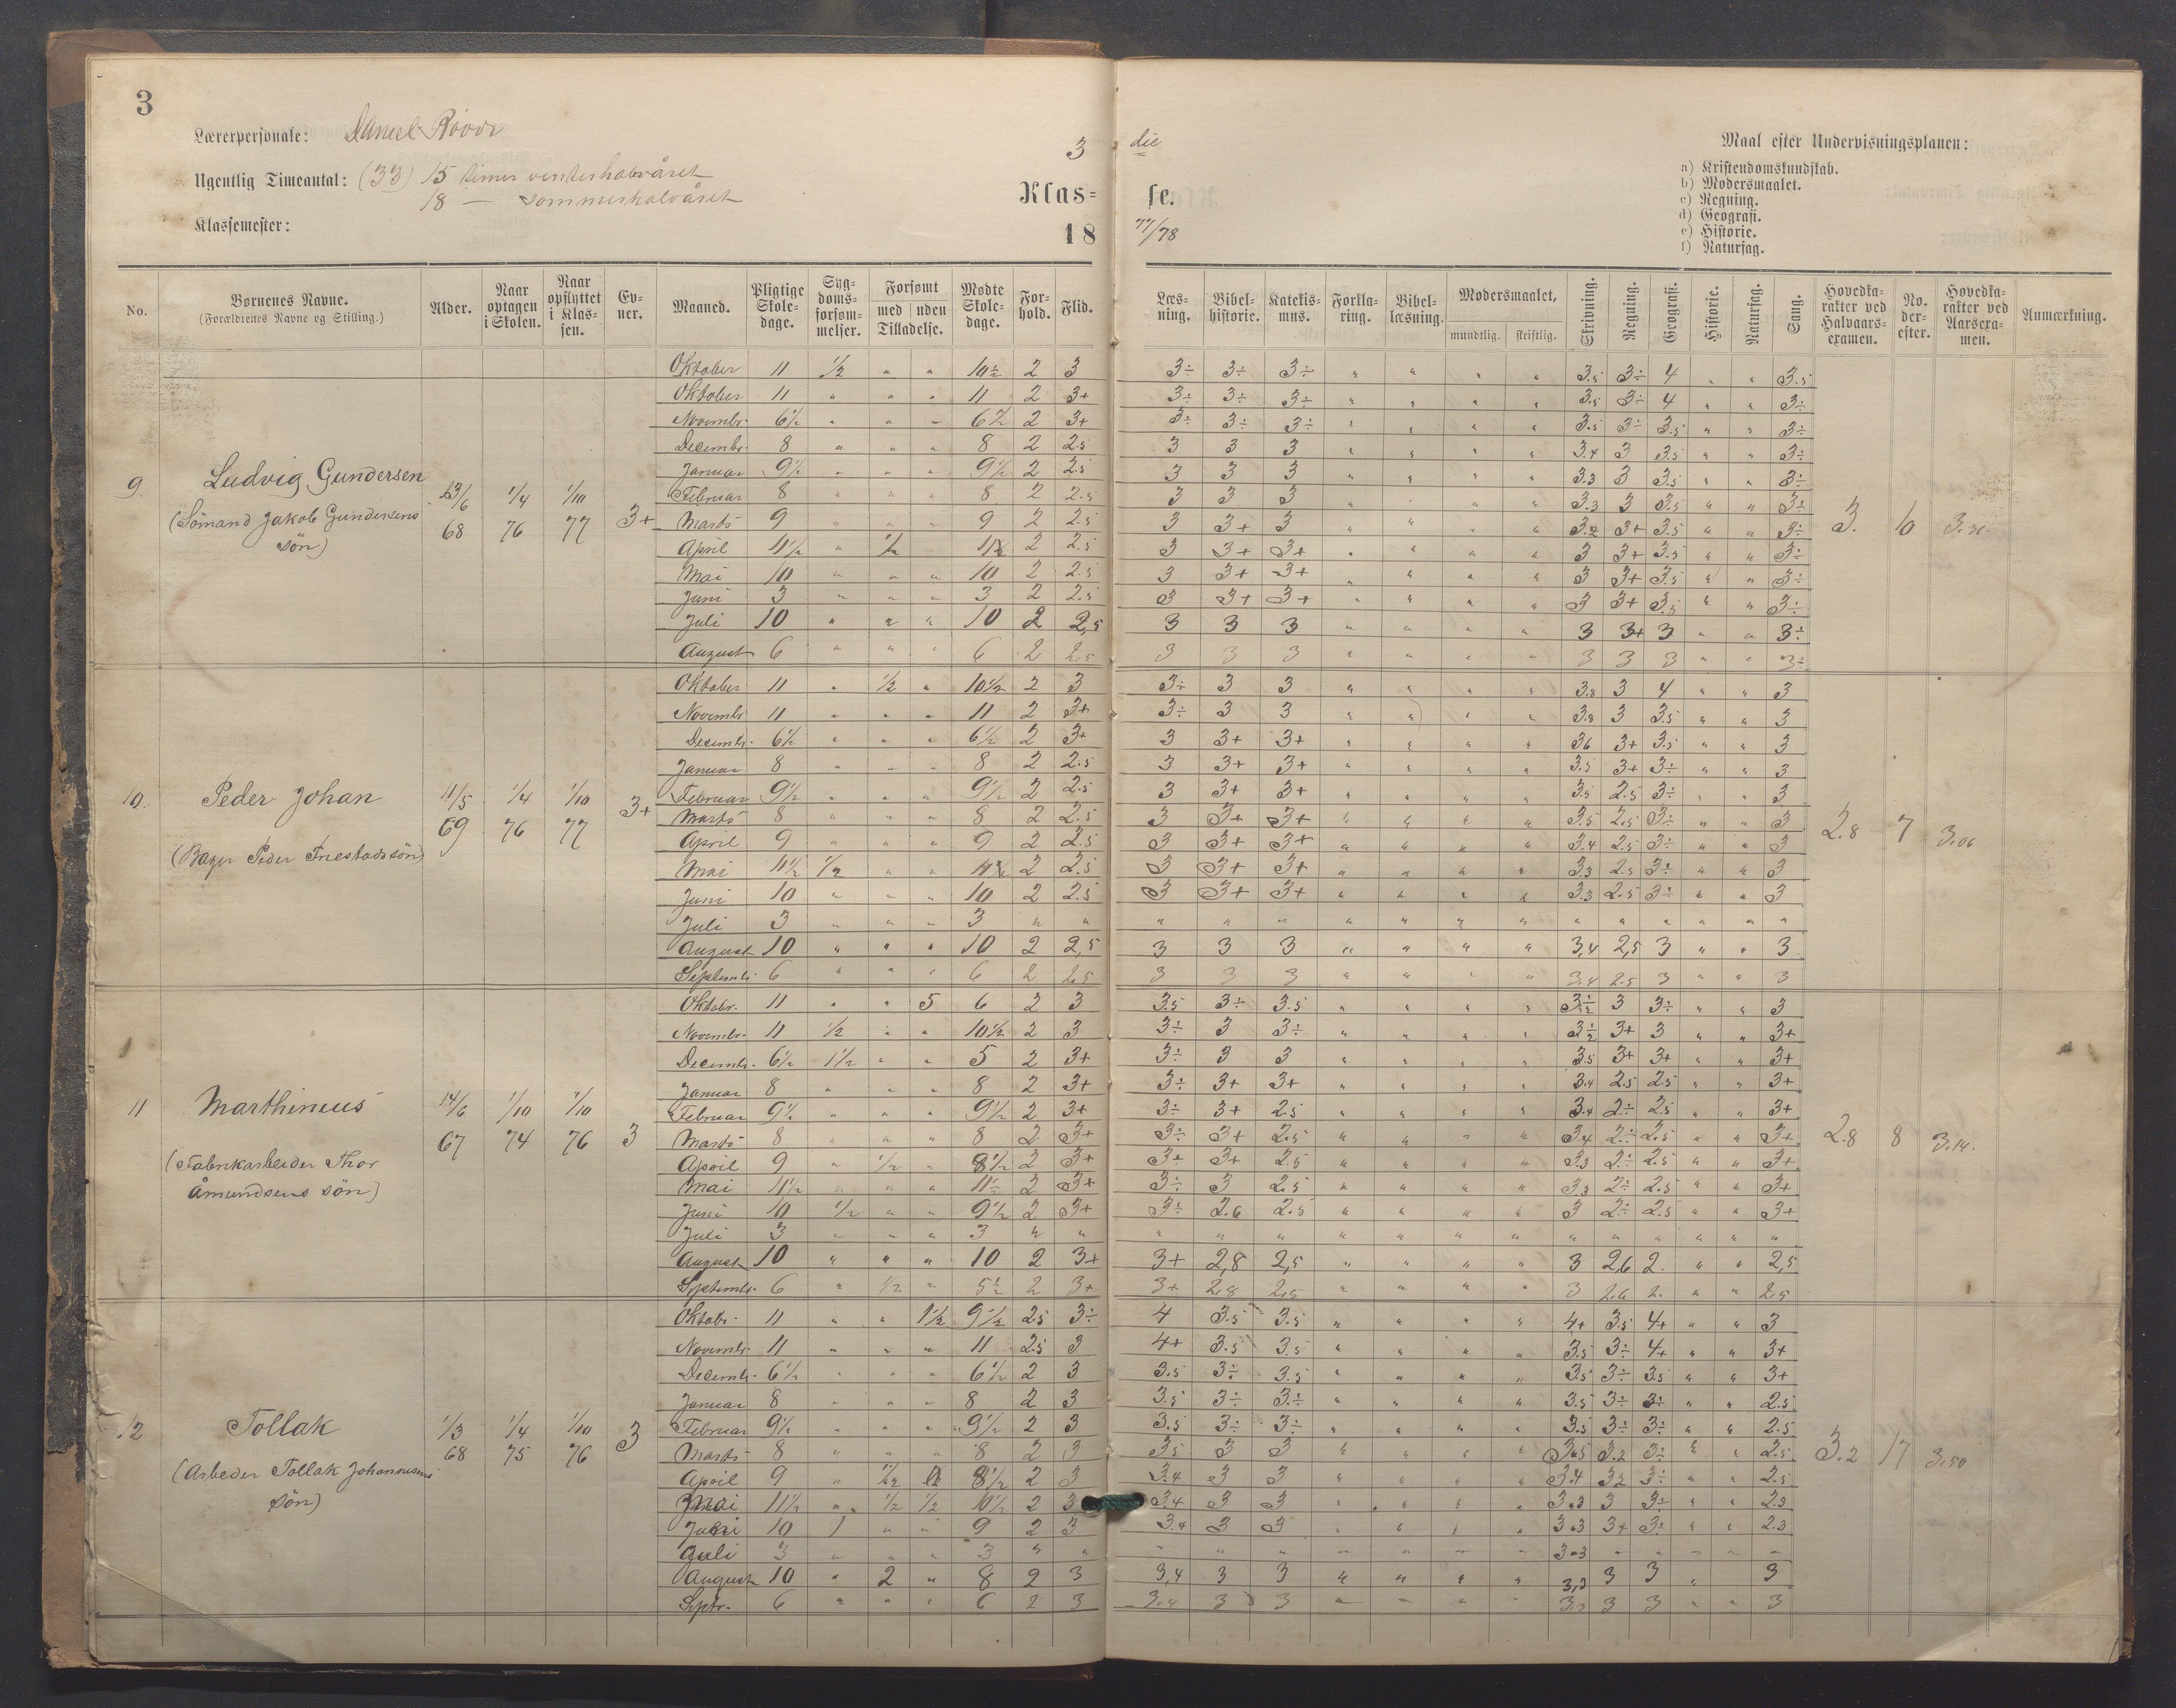 3
Lærerpersonale: Daniel
Ugentlig Timeantal: (33) 15 timer vinterhalvåret
18 — sommerhalvåret
Klassemester:
3 die
Klas= se.
18 77/78
Maal efter Undervisningsplanen:
a) Kristendomskundskab.
b) Modersmaalet.
c) Regning.
d) Geografi.
e) Historie.
f) Naturfag.
No. | Børnenes Navne. (Forældrenes Navne og Stilling.) | Alder. | Naar optagen i Skolen. | Naar opflyttet i Klassen. | Evner. | Maaned. | Pligtige Skoledage. | Sygdomsforsømmelser. | Forsømt med uden Tilladelse. | Mødte Skoledage. | Forhold. | Flid. | Læsning. | Bibelhistorie. | Katekismus. | Forklaring. | Bibellæsning. | Modersmaalet, mundtlig. skriftlig. | Skrivning. | Regning. | Geografi. | Historie. | Naturfag. | Sang. | Hovedkarakter ved Halvaarsexamen. | No. derefter. | Hovedkarakter ved Aarsexamen. | Anmærkning.
9. Ludvig Gundersen
(Sömand Jakob Gundersens
sön)
13/6 68 1/4 76 1/10 77 3+
Oktober 11 1/2 " " 10 1/2 2 3 3÷ 3÷ 3÷ " " " " 3.5 3÷ 4 " " 3.5
Oktober 11 " " " 11 2 3+ 3÷ 3÷ 3÷ " " " " 3.5 3÷ 4 " " 3÷
Novembr. 6 1/2 " " " 6 1/2 2 3+ 3÷ 3÷ 3÷ " " " " 3.5 3÷ 3.5 " " 3÷
Decembr. 8 " " " 8 2 2.5 3 3 3 " " " " 3.4 3 3.5 " " 3÷
Januar 9 1/2 " " " 9 1/2 2 2.5 3 3 3 " " " " 3.3 3 3.5 " " 3÷
Februar 8 " " " 8 2 2.5 3 3 3 " " " " 3.3 3 3.5 " " 3÷
Marts 9 " " " 9 2 2.5 3 3+ 3 " " " " 3.2 3+ 3.5 " " 3÷
April 11 1/2 " 1/2 2 2.5 3 3+ 3+ " " " " 3 3+ 3.5 " " 3÷
Mai 10 " " " 10 2 2.5 3 3+ 3+ " " " " 3 3+ 3.5 " " 3÷
Juni 3 " " " 3 2 2.5 3 3+ 3+ " " " " 3 3+ 3.5 " " 3÷
Juli 10 " " " 10 2 2,5 3 3 3 " " " " 3 3+ 3 " " 3÷
August 6 " " " 6 2 2.5 3 3 3 " " " " 3 3 3 " " 3÷
3. 10
10. Peder Johan
(Bager Peder sön)
11/5 69 1/4 76 1/10 77 3+
Oktober 11 " 1/2 " 10 1/2 2 3 3÷ 3 3 " " " " 3.8 3 4 " " 3
Novembr 11 " " " 11 2 3+ 3÷ 3 3 " " " " 3.8 3 3.5 " " 3
Decembr. 6 1/2 " " " 6 1/2 2 3+ 3 3+ 3+ " " " " 3.6 3+ 3.5 " " 3
Januar 8 " " " 8 2 2.5 3 3+ 3+ " " " " 3.5 3+ 3÷ " " 3
Februar 9 1/2 " " " 9 1/2 2 2.5 3 3+ 3+ " " " " 3.5 2.5 3÷ " " 3
Marts 8 " " " 8 2 2.5 3 3+ 3+ " " " " 3.5 2.5 3÷ " " 3
April 9 " " " 9 2 2.5 3 3+ 3+ " " " " 3.4 2.5 3÷ " " 3
Mai 11 1/2 1/2 " " 2 2.5 3 3+ 3+ " " " " 3.3 2.5 3÷ " " 3
Juni 10 " " " 10 2 2.5 3 3+ 3+ " " " " 3.3 2.5 3÷ " " 3
Juli 3 " " " 3 " " " " " " " " " " " " " " "
August 10 " " " 10 2 2,5 3 3 3 " " " " 3,4 2,5 3 " " 3
Septembr. 6 " " " 6 2 2.5 3 3 3 " " " " 3.4 2.5 3 " " 3
2.8 7 3.06
11 Marthineus
(Fabrikarbeider Thor
Åmundsens sön)
14/6 67 1/10 74 1/10 76 3
Oktobr. 11 " " 5 6 2 3 3.5 3÷ 3.5 " " " " 3 3÷ " " 3
Novembr. 11 1/2 " " 10 1/2 2 3 3÷ 3 3÷ " " " " 3+ 3 " " 3+
Decembr. 6 1/2 1 1/2 " " 5 2 3+ 3÷ 3 3 " " " " 3.5 3+ 3+ " " 3+
Januar 8 " " " 8 2 3+ 3÷ 3+ 3+ " " " " 3.4 2.5 2.5 " " 3+
Februar 9 1/2 " " " 9 1/2 2 3+ 3÷ 3+ 2.5 " " " " 3.4 2÷ 2.5 " " 3+
Marts 8 " " " 8 2 3+ 3÷ 3+ 2.5 " " " " 3.4 2÷ 2.5 " " 3+
April 9 " 1/2 " 8 1/2 2 3+ 3+ 3+ 2.5 " " " " 3.3 2÷ 2.5 " " 3+
Mai 11 1/2 " " " 11 1/2 2 3+ 3÷ 3 2.5 " " " " 3.3 2÷ 2.5 " " 3+
Juni 10 1/2 " " 9 1/2 2 3+ 3÷ 2.6 2.5 " " " " 3 2÷ 2.5 " " 3+
Juli 3 " " " 3 " " " " " " " " " " " " " " "
August 10 " " " 10 2 3+ 3+ 2,8 2,5 " " " " 3 2,6 2. " " 2,5
Septembr. 6 " 1/2 " 5 1/2 2 3+ 3+ 2.8 2.5 " " " " 3 2.6 2. " " 2.5
2.8 8 3.14.
12 Tollak
(Arbeder Tollak Johannesens
sön)
1/3 68 1/4 75 1/10 76 3
Oktobr. 11 " " 1 1/2 9 1/2 2.5 3÷ 4 3.5 3.5 " " " " 4+ 3.5 4+ " " 3
Novembr. 11 " " " 11 2.5 3 4+ 3.5 3.5 " " " " 3.5 3÷ 4+ " " 3+
Decembr. 6 1/2 " " " 6 1/2 2 3 3.5 3÷ 3.5 " " " " 3.5 3÷ 3.5 " " 3+
Januar 8 " " " 8 2 3 3.5 3÷ 3÷ " " " " 3.5 3÷ 3÷ " " 2.5
Februar 9 1/2 " " " 9 1/2 2 3 3.5 3÷ 3÷ " " " " 3.5 3÷ 3÷ " " 2.5
Marts 8 " " " 8 2 3 3.5 3 3 " " " " 3.5 3.2 3÷ " " 2.5
April 9 " 1/2 8 1/2 2 3 3.4 3 3 " " " " 3.4 3.2 3÷ " " 2.5
Mai 11 1/2 " 1/2 1/2 10 1/2 2 3 3.4 3 3 " " " " 3.3 3 3÷ " " 2.3
Juni 10 1 " " 9 2 3 3.4 3 3 " " " " 3.3 3+ 3÷ " " 2.3
Juli 3 " " " 3 " " " " " " " " " 3.3 " " " " "
August 10 " 2 " 8 2 3 3,4 3 3 " " " " 3,3 3 3 " 3
Septr. 6 " " " 6 2 3 3.4 3 3 " " " " 3.3 3 3 " " 3
3.2 17 3.50